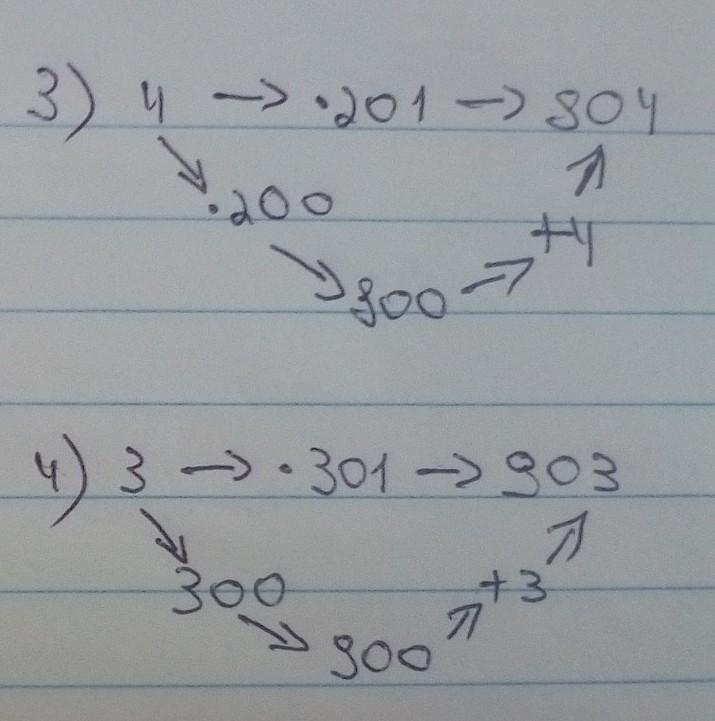 3) 4 → ·201 → 804
·200
+4
800
4) 3 → ·301 → 903
300
+3
900